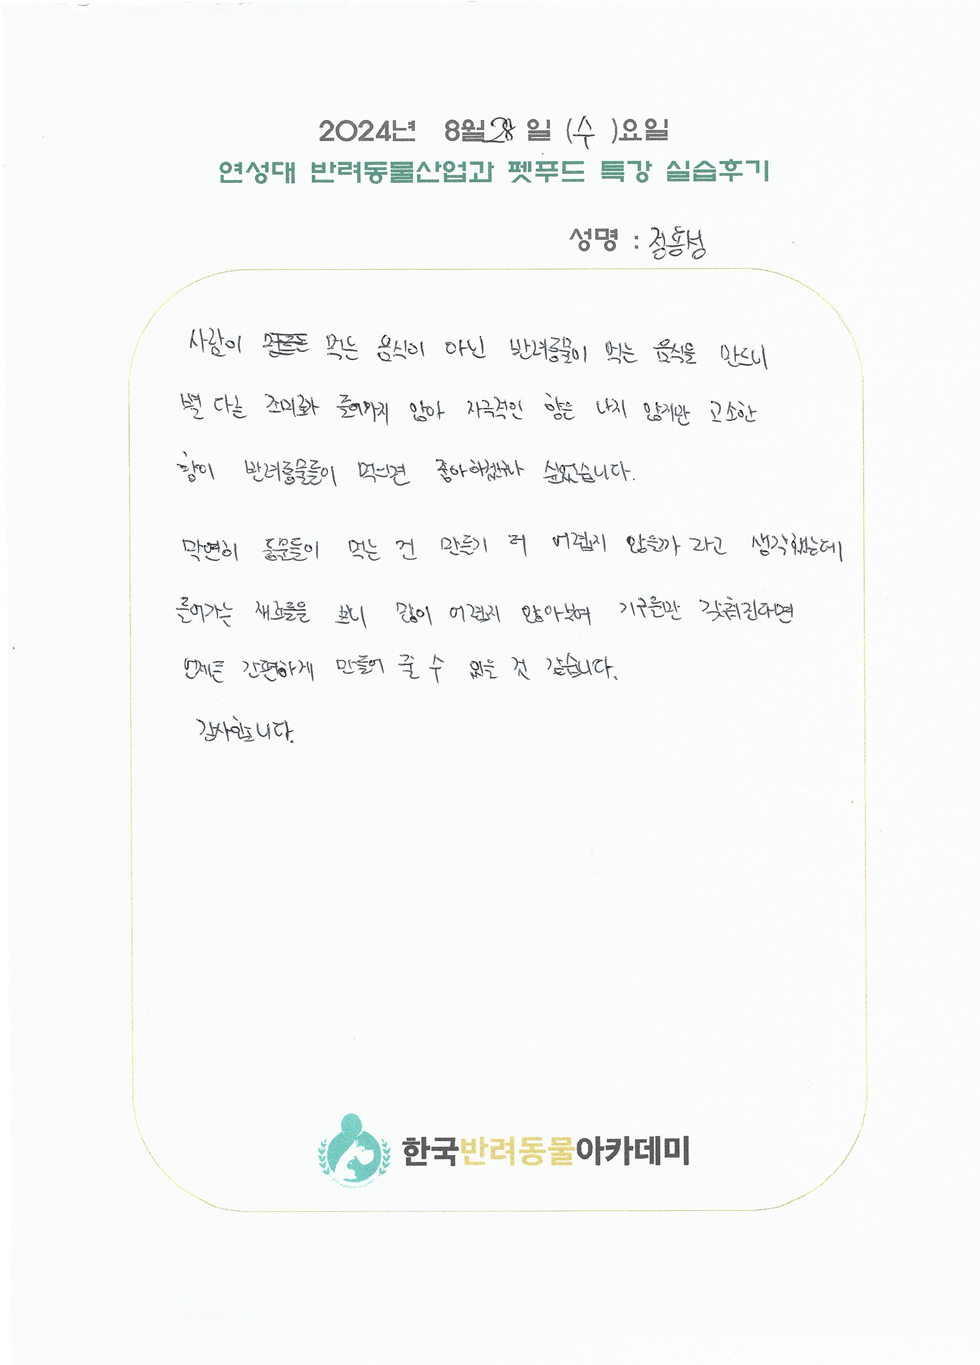 2024년 8월 28 일 (수 )요일
연성대 반려동물산업과 펫푸드 특강 실습후기
성명 : 정용성
사람이 먹는 음식이 아닌 반려동물이 먹는 음식을 만드니
별 다른 조미료와 들어가지 않아 자극적인 향은 나지 않지만 고소한
향이 반려동물들이 먹으면 좋아하겠구나 싶었습니다.
막연히 동물들이 먹는 건 만들기 더 어렵지 않을까 라고 생각했는데
들어가는 재료들을 보니 많이 어렵지 않아보여 기구들만 갖춰진다면
언제든 간편하게 만들어 줄 수 있는 것 같습니다.
감사합니다.
한국반려동물아카데미